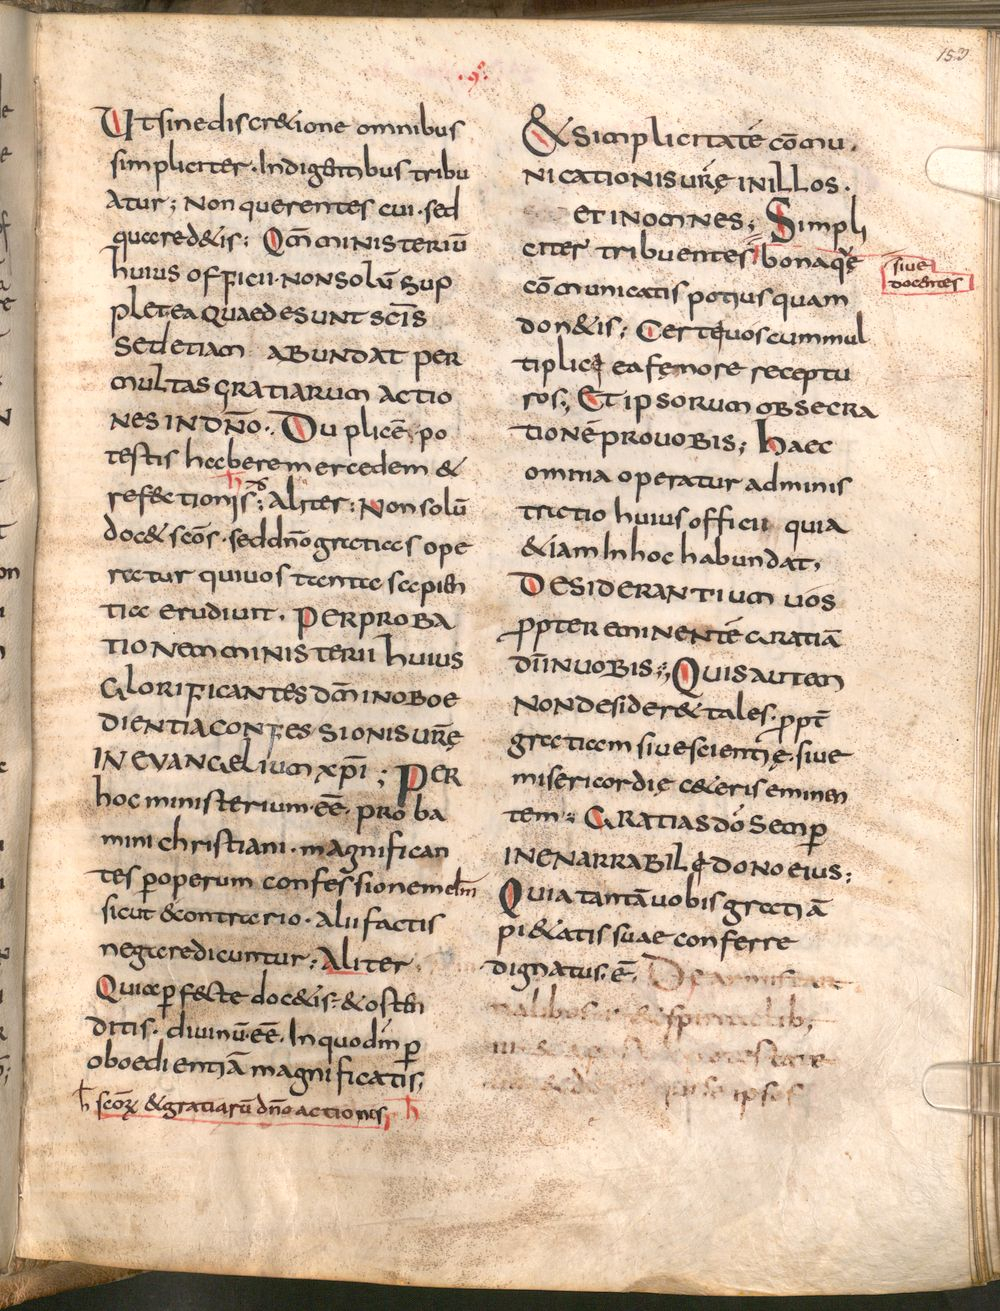 153
·9·
Ut sine discr&ione omnibus
simpliciter · Indigentibus tribu
atur ; Non querentes cui · sed
quare d&is ; Qm̄ ministeriū
huius officii · non solū sup
plet ea quae desunt scīs
sed etiam abundat per
multas gratiarum actio
nes in dn̄o · Duplicē · po
testis habere mercedem &
h
refectionis ; Aliter ; Non solū
doc& scōs · sed dn̄o gratias ope
ratur qui uos tanta sapien
tia erudiuit · Per proba
tionem ministerii huius
Glorificantes dm̄ in oboe
dientia confessionis ur̄ę
in evangelium xp̄i ; Per
hoc ministerium · ēē · proba
mini christiani · magnifican
tes ꝑ operum confessionem dm̄
sicut & contrario · alii factis
negare dicuntur ; Aliter
Quia ꝑfecte doc&is · & osten
ditis · divinū · ēē · In quo dm̄ ꝑ
oboedientiā magnificatis ;
h scōrꝝ & gratiarū dn̄o actiones h
& simplicitatē cōmu
nicationis ur̄ę in illos ·
et in omnes ; Simpli
citer tribuentes bonaquę
siue
docentes
cōmunicatis potius quam
don&is ; Certe uos cum mul
tiplici ea fęnore receptu
ros ; Et ipsorum obsecra
tionē pro uobis ; haec
omnia operatur adminis
tratio huius officii quia
&iam In hoc habundat ·
Desiderantium uos
ꝓpter eminentē gratiā
dī in uobis ; Quis autem
Non desider& tales · ꝓpt̄
gratiam siue scientię · siue
misericordię c&eris eminen
tem ; Gratias dō semꝑ
inenarrabili dono eius ;
Quia tantā uobis gratiā
pi&atis suae conferre
dignatus · ē ·
nalibus & spiritalib;
ipsos